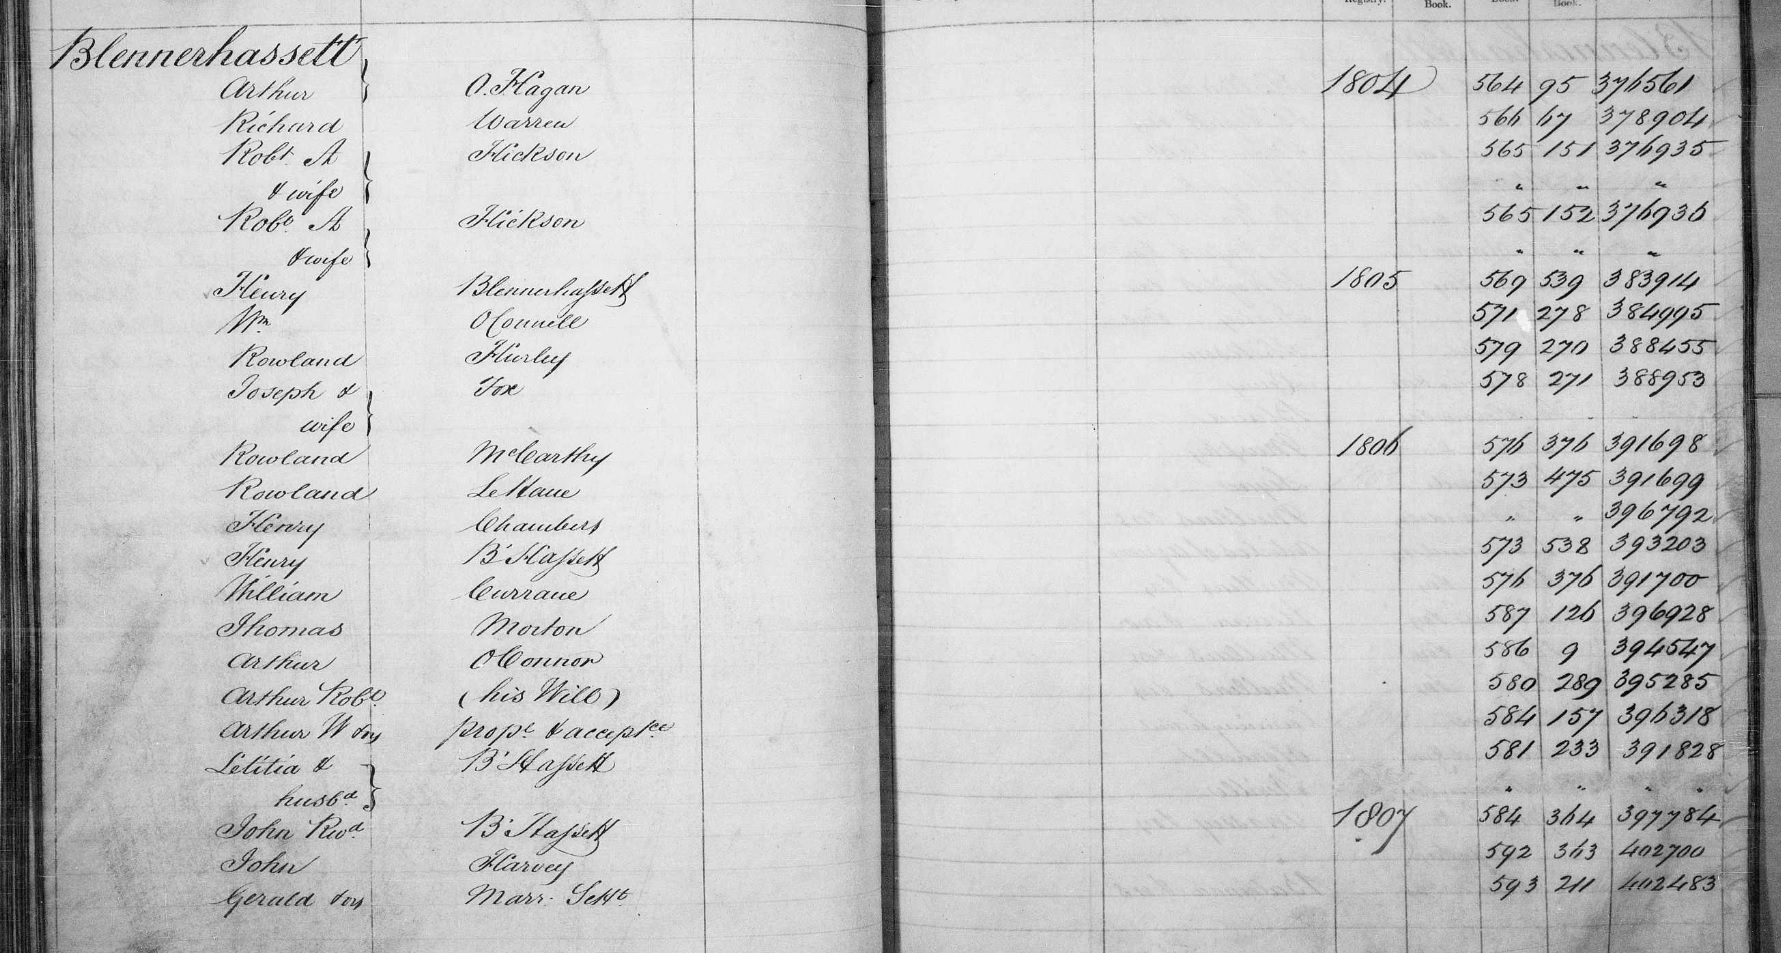 Registry. Book. Book. Book.
Blennerhassett
Arthur O. Hagan 1804 564 95 376561
Richard Warren 566 67 378904
Robt. A Hickson 565 151 376935
& wife " " "
Robt. A Hickson 565 152 376936
& wife " " "
Henry Blennerhassett 1805 569 539 383914
Wm OConnell 571 278 384995
Rowland Hurley 579 270 388455
Joseph & Fox 578 271 388953
wife
Rowland McCarthy 1806 576 376 391698
Rowland LeHane 573 475 391699
Henry Chambers " " 396792
Henry B'Hassett 573 538 393203
William Currane 576 376 391700
Thomas Morton 587 126 396928
Arthur OConnor 586 9 394547
Arthur Robt. (his Will) 580 289 395285
Arthur W &ors propl. & acceptce 584 157 396318
Letitia & B'Hassett 581 233 391828
husbd " " " "
John Rwd. B'Hassett 1807 584 364 397784
John Harvey 592 363 402700
Gerald &ors Marr. Settt. 593 211 402483